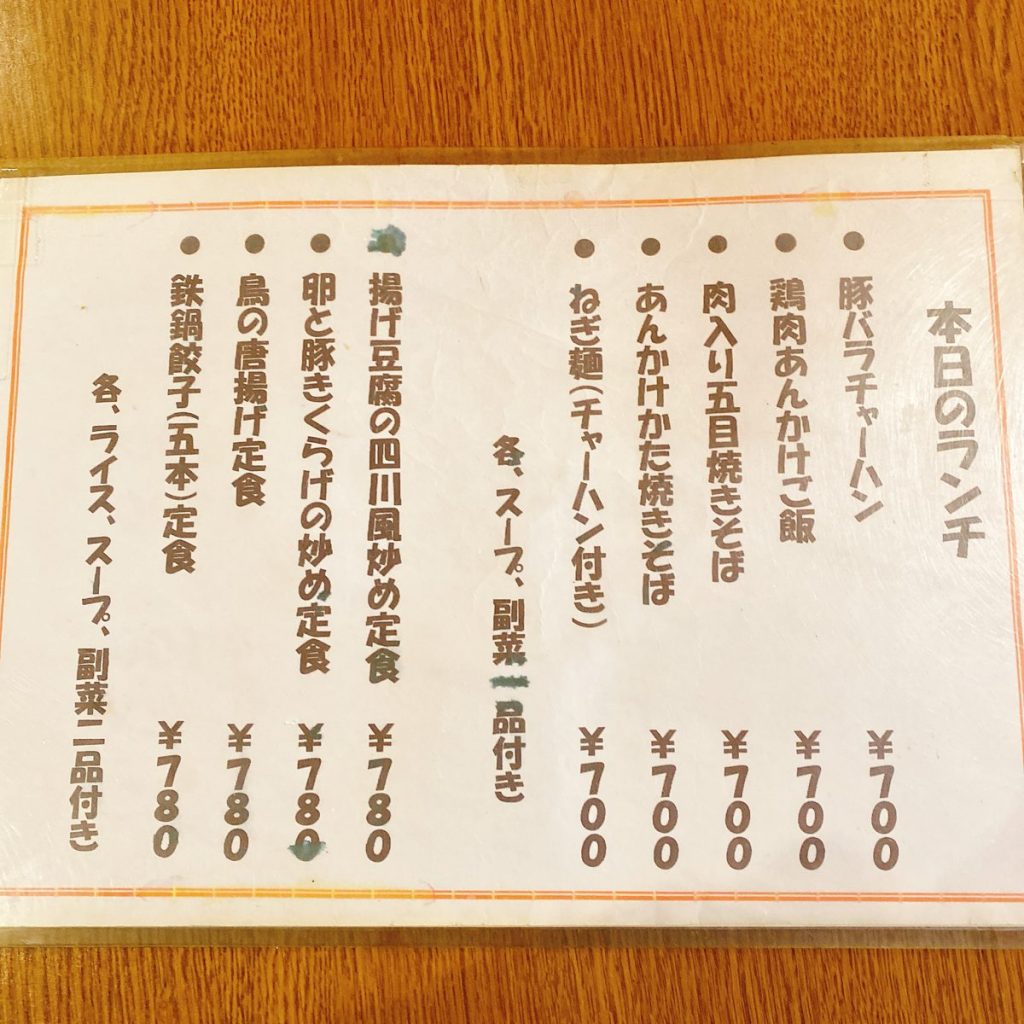 本日のランチ
●豚バラチャーハン ¥700
●鶏肉あんかけご飯 ¥700
●肉入り五目焼きそば ¥700
●あんかけかた焼きそば ¥700
●ねぎ麺(チャーハン付き) ¥700
各、スープ、副菜一品付き
●揚げ豆腐の四川風炒め定食 ¥780
●卵と豚きくらげの炒め定食 ¥780
●鳥の唐揚げ定食 ¥780
●鉄鍋餃子(五本)定食 ¥780
各、ライス、スープ、副菜二品付き